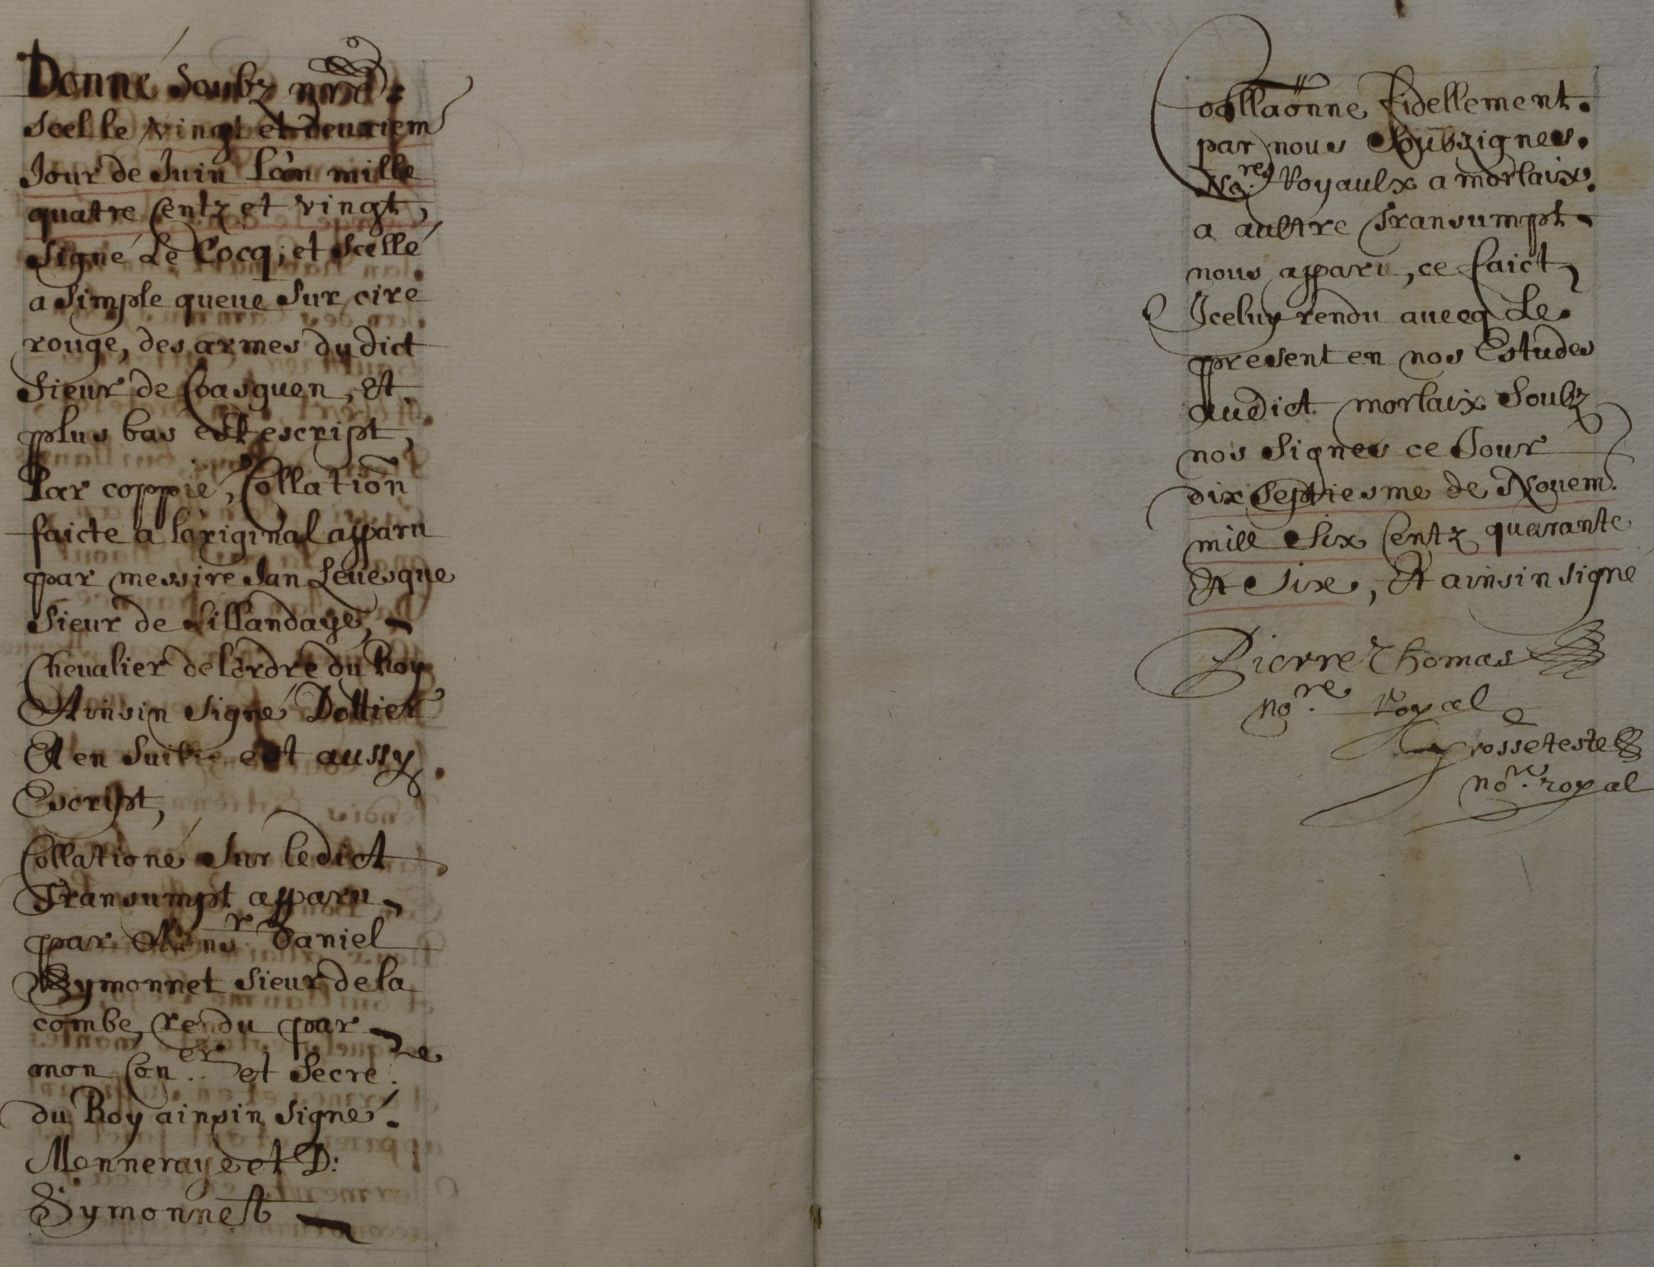 Donné Soubz nrẽd:
Scel le vingt et deuxiem
Jour de Juin L'an mille
quatre Centz et vingt,
Signé Le Cocq; et Scellé
a Simple queue Sur cire
rouge, des armes dudict
Sieur de Coasquen, Et
plus bas est escript,
Par coppie, Collation
faicte a l'original apparu
par messire Jan Levesque
Sieur de Lillandaye,
Chevalier de l'ordre du Roy
Ainsin Signé Dollier
Et en Suitte est aussy
Escript,
Collationé Sur ledict
Transumpt apparu
par Monsr. Daniel
Symonnet Sieur de la
combe, rendu par
mon Coner. et Secrere.
du Roy ainsin Signé.
Monneraye et D:
Symonnet
Collaõnne Fidellement.
par nous Soubzignes.
Nores. Royaulx a morlaix.
a aultre Transumpt
nous apparu, ce faict,
Iceluy rendu avecq Le.
present en nos Estudes
audict morlaix Soubz
nos Signes ce Jour
dix Septiesme de Novem.
mill Six Centz quarante
Et Six, Et ainsin signe
Pierre Thomas
Nore. Royal
Grosseteste
nore. royal